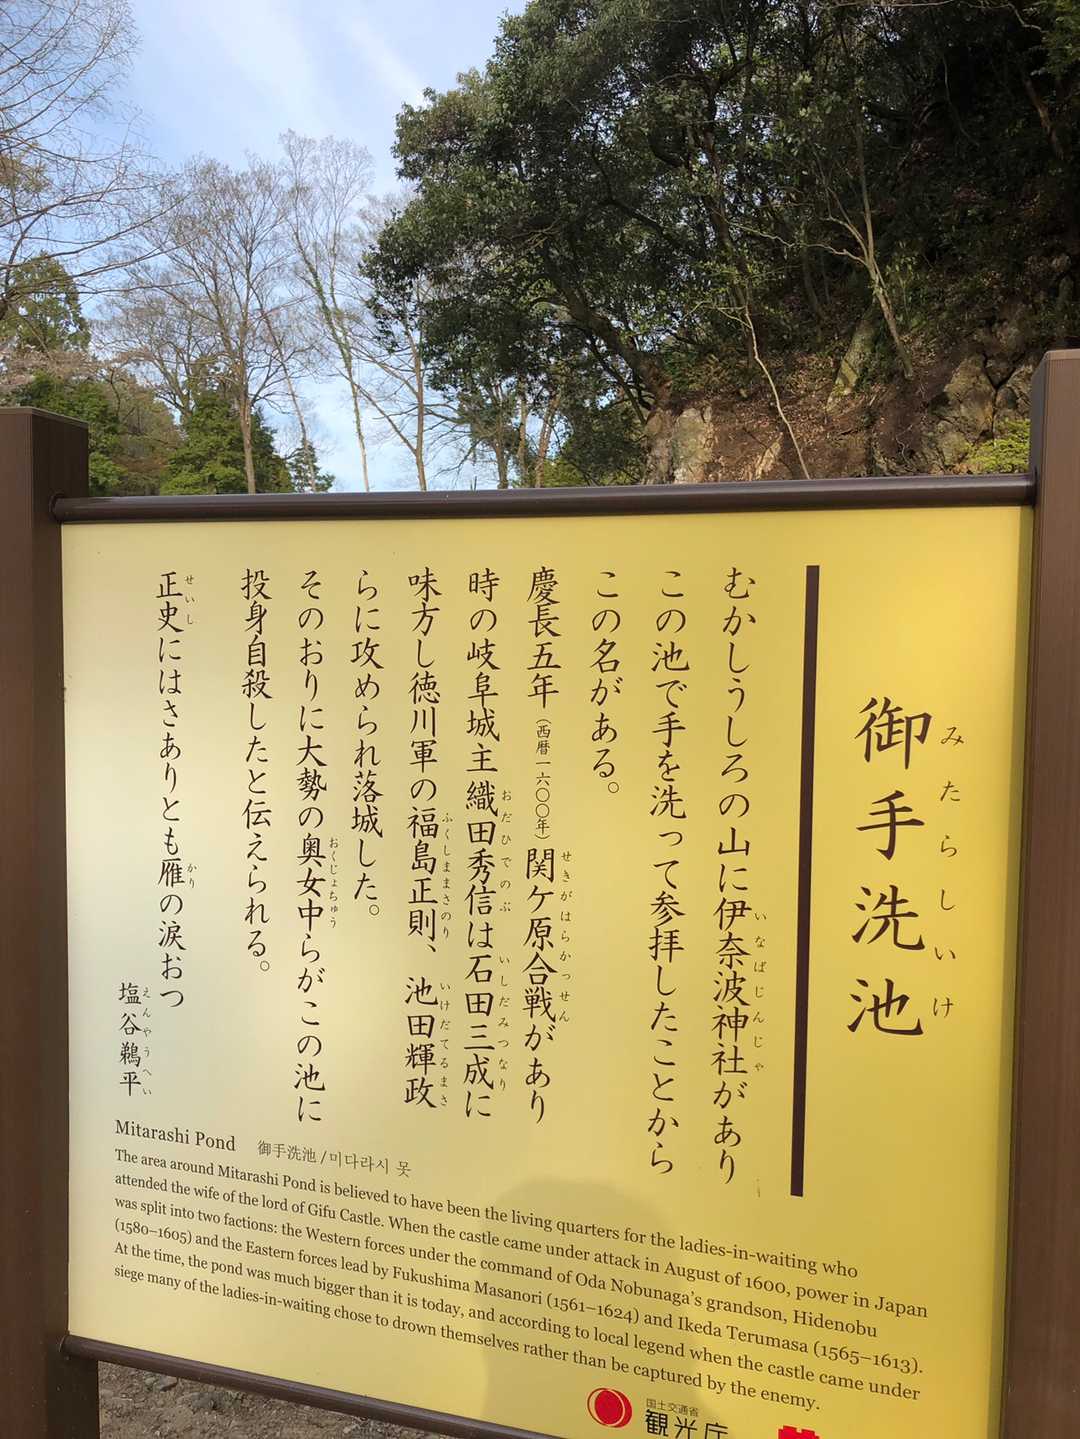 御手洗池
みたらしいけ
むかしうしろの山に伊奈波神社があり
いなばじんじゃ
この池で手を洗って参拝したことから
この名がある。
慶長五年(西暦一六〇〇年)関ケ原合戦があり
せきがはらかっせん
時の岐阜城主織田秀信は石田三成に
おだひでのぶ いしだみつなり
味方し徳川軍の福島正則、池田輝政
ふくしままさのり いけだてるまさ
らに攻められ落城した。
そのおりに大勢の奥女中らがこの池に
おくじょちゅう
投身自殺したと伝えられる。
正史にはさありとも雁の涙おつ
せいし かり
塩谷鵜平
えんやうへい
Mitarashi Pond 御手洗池/미다라시 못
The area around Mitarashi Pond is believed to have been the living quarters for the ladies-in-waiting who
attended the wife of the lord of Gifu Castle. When the castle came under attack in August of 1600, power in Japan
was split into two factions: the Western forces under the command of Oda Nobunaga's grandson, Hidenobu
(1580–1605) and the Eastern forces lead by Fukushima Masanori (1561–1624) and Ikeda Terumasa (1565–1613).
At the time, the pond was much bigger than it is today, and according to local legend when the castle came under
siege many of the ladies-in-waiting chose to drown themselves rather than be captured by the enemy.
国土交通省
観光庁